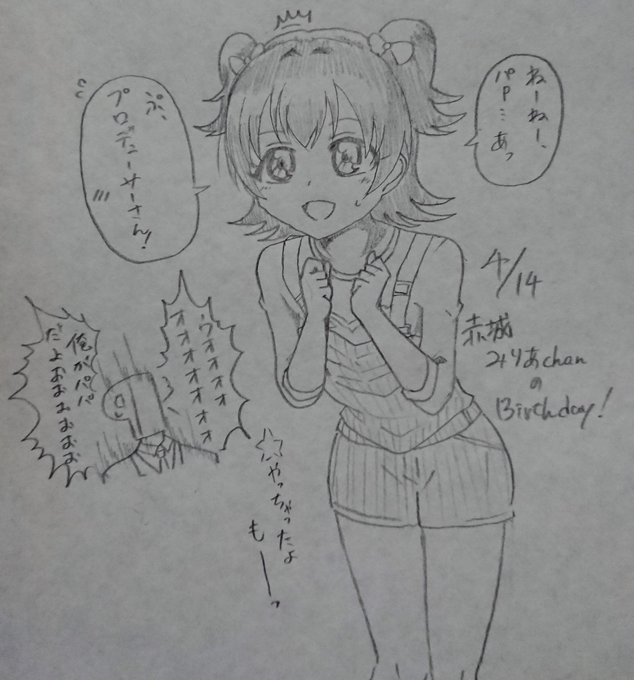 ねーねー、
パパ…あっ
ぷ、
プロデューサーさん!
4/14
赤城
みりあchan
の
Birthday!
ウオオオオ
オオオオオオ
俺がパパ
だよおおおおおお
☆やっちゃったよ
もーーっ